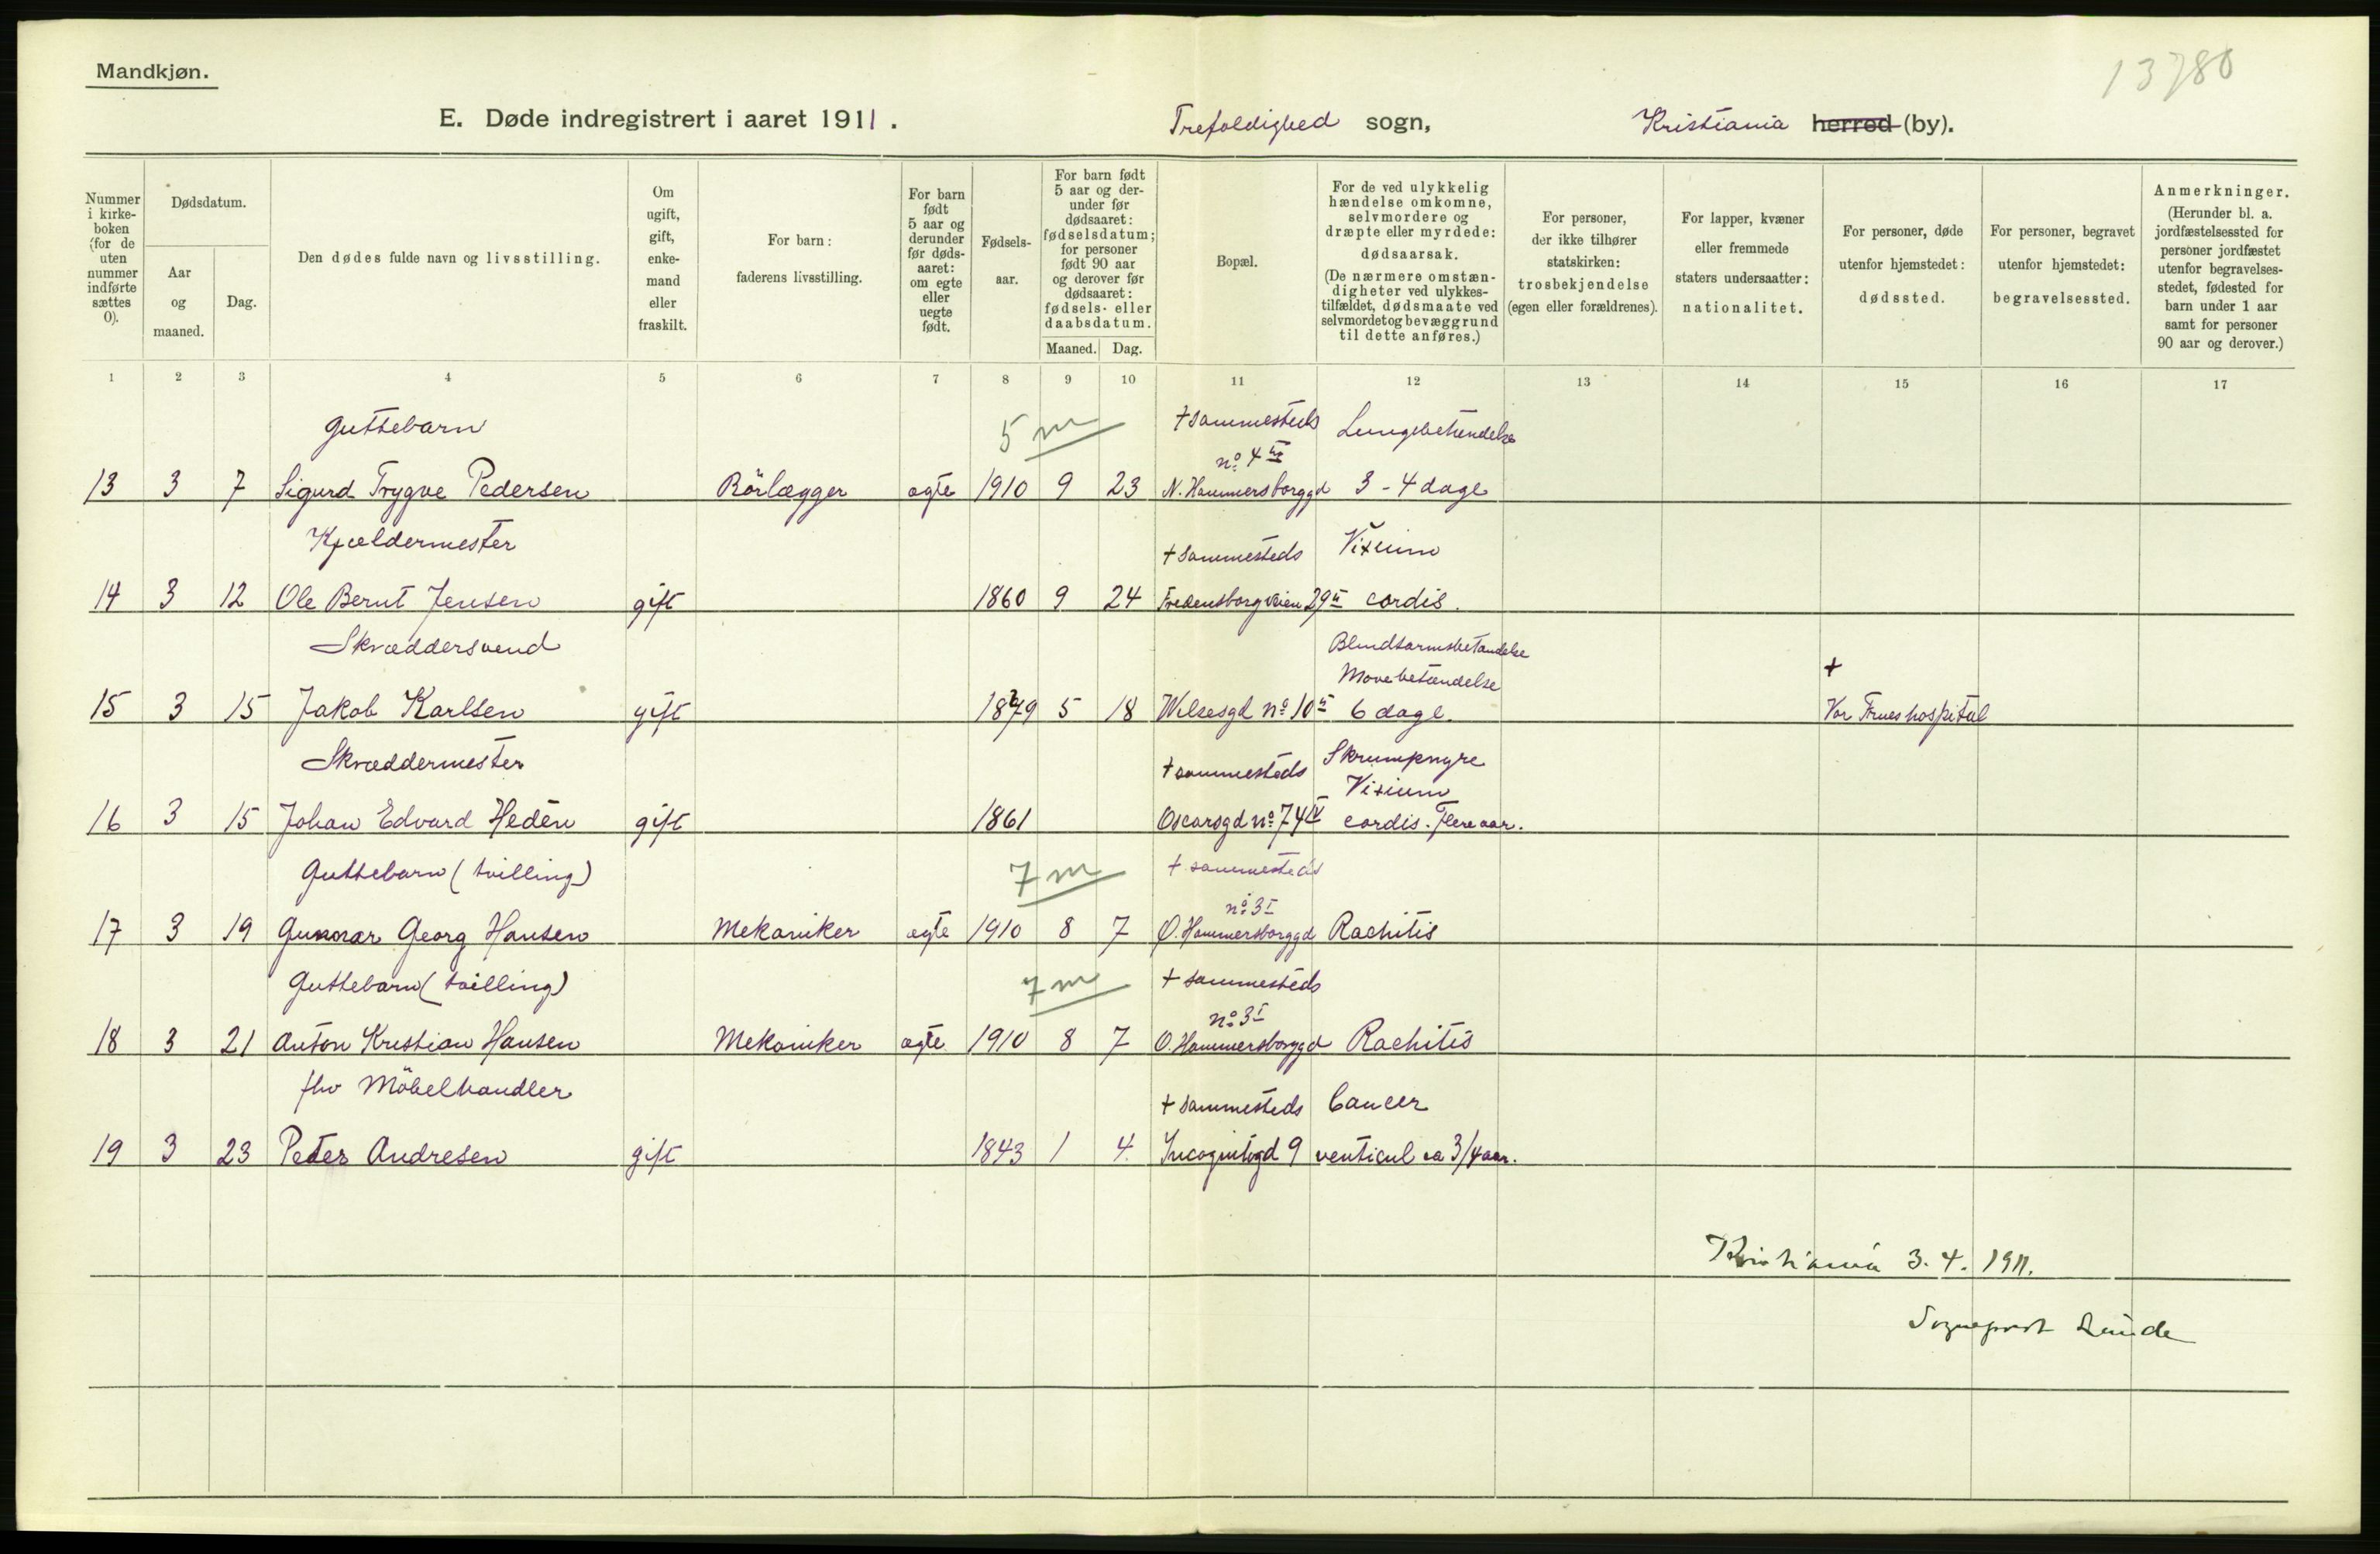 Mandkjøn.
13780
E. Døde indregistrert i aaret 1911. Trefoldighed sogn, Kristiania herred (by).
Nummer i kirkeboken (for de uten nummer indførte sættes 0).
Dødsdatum.
Aar og maaned.
Dag.
Den dødes fulde navn og livsstilling.
Om ugift, gift, enkemand eller fraskilt.
For barn: faderens livsstilling.
For barn født 5 aar og derunder før dødsaaret: om egte eller uegte født.
Fødselsaar.
For barn født 5 aar og derunder før dødsaaret: fødselsdatum; for personer født 90 aar og derover før dødsaaret: fødsels- eller daabsdatum.
Maaned. Dag.
Bopæl.
For de ved ulykkelig hændelse omkomne, selvmordere og dræpte eller myrdede: dødsaarsak. (De nærmere omstændigheter ved ulykkestilfældet, dødsmaate ved selvmord et og bevæggrund til dette anføres.)
For personer, der ikke tilhører statskirken: trosbekjendelse (egen eller forældrenes).
For lapper, kvæner eller fremmede staters undersaatter: nationalitet.
For personer, døde utenfor hjemstedet: dødssted.
For personer, begravet utenfor hjemstedet: begravelsessted.
Anmerkninger. (Herunder bl. a. jordfæstelsessted for personer jordfæstet utenfor begravelsesstedet, fødested for barn under 1 aar samt for personer 90 aar og derover.)
1 2 3 4 5 6 7 8 9 10 11 12 13 14 15 16 17
Guttebarn 5 m + sammesteds Lungebetændelse
no 4
13 3 7 Sigurd Trygve Pedersen Rörlægger egte 1910 9 23 N. Hammersborggd 3 - 4 dage
Kjældermester + sammesteds Vitium
14 3 12 Ole Bernt Jensen gift 1860 9 24 Fredensborgveien 29 II cordis.
Skræddersvend Blindtarmsbetændelse
Mavebetændelse +
15 3 15 Jakob Karlsen gift 1879 5 18 no 10 6 dage. Vor Frues hospital
Skræddermester + sammesteds Skrumpnyre
Vitium
16 3 15 Johan Edvard Hedén gift 1861 Oscarsgd no 74 IV cordis. Flere aar.
Guttebarn (tvilling) 7 m + sammesteds
no 3 I
17 3 19 Gunnar Georg Hansen Mekaniker egte 1910 8 7 Ø. Hammersborggd Rachitis
Guttebarn (tvilling) 7 m + sammesteds
no 3 I
18 3 21 Anton Kristian Hansen Mekaniker egte 1910 8 7 Ø. Hammersborggd Rachitis
fhv Möbelhandler + sammesteds Cancer
19 3 23 Peter Andresen gift 1843 1 4. Incognitogd 9 venticul ca 3/4 aar.
Kristiania 3. 4. 1911.
Sogneprest Lunde